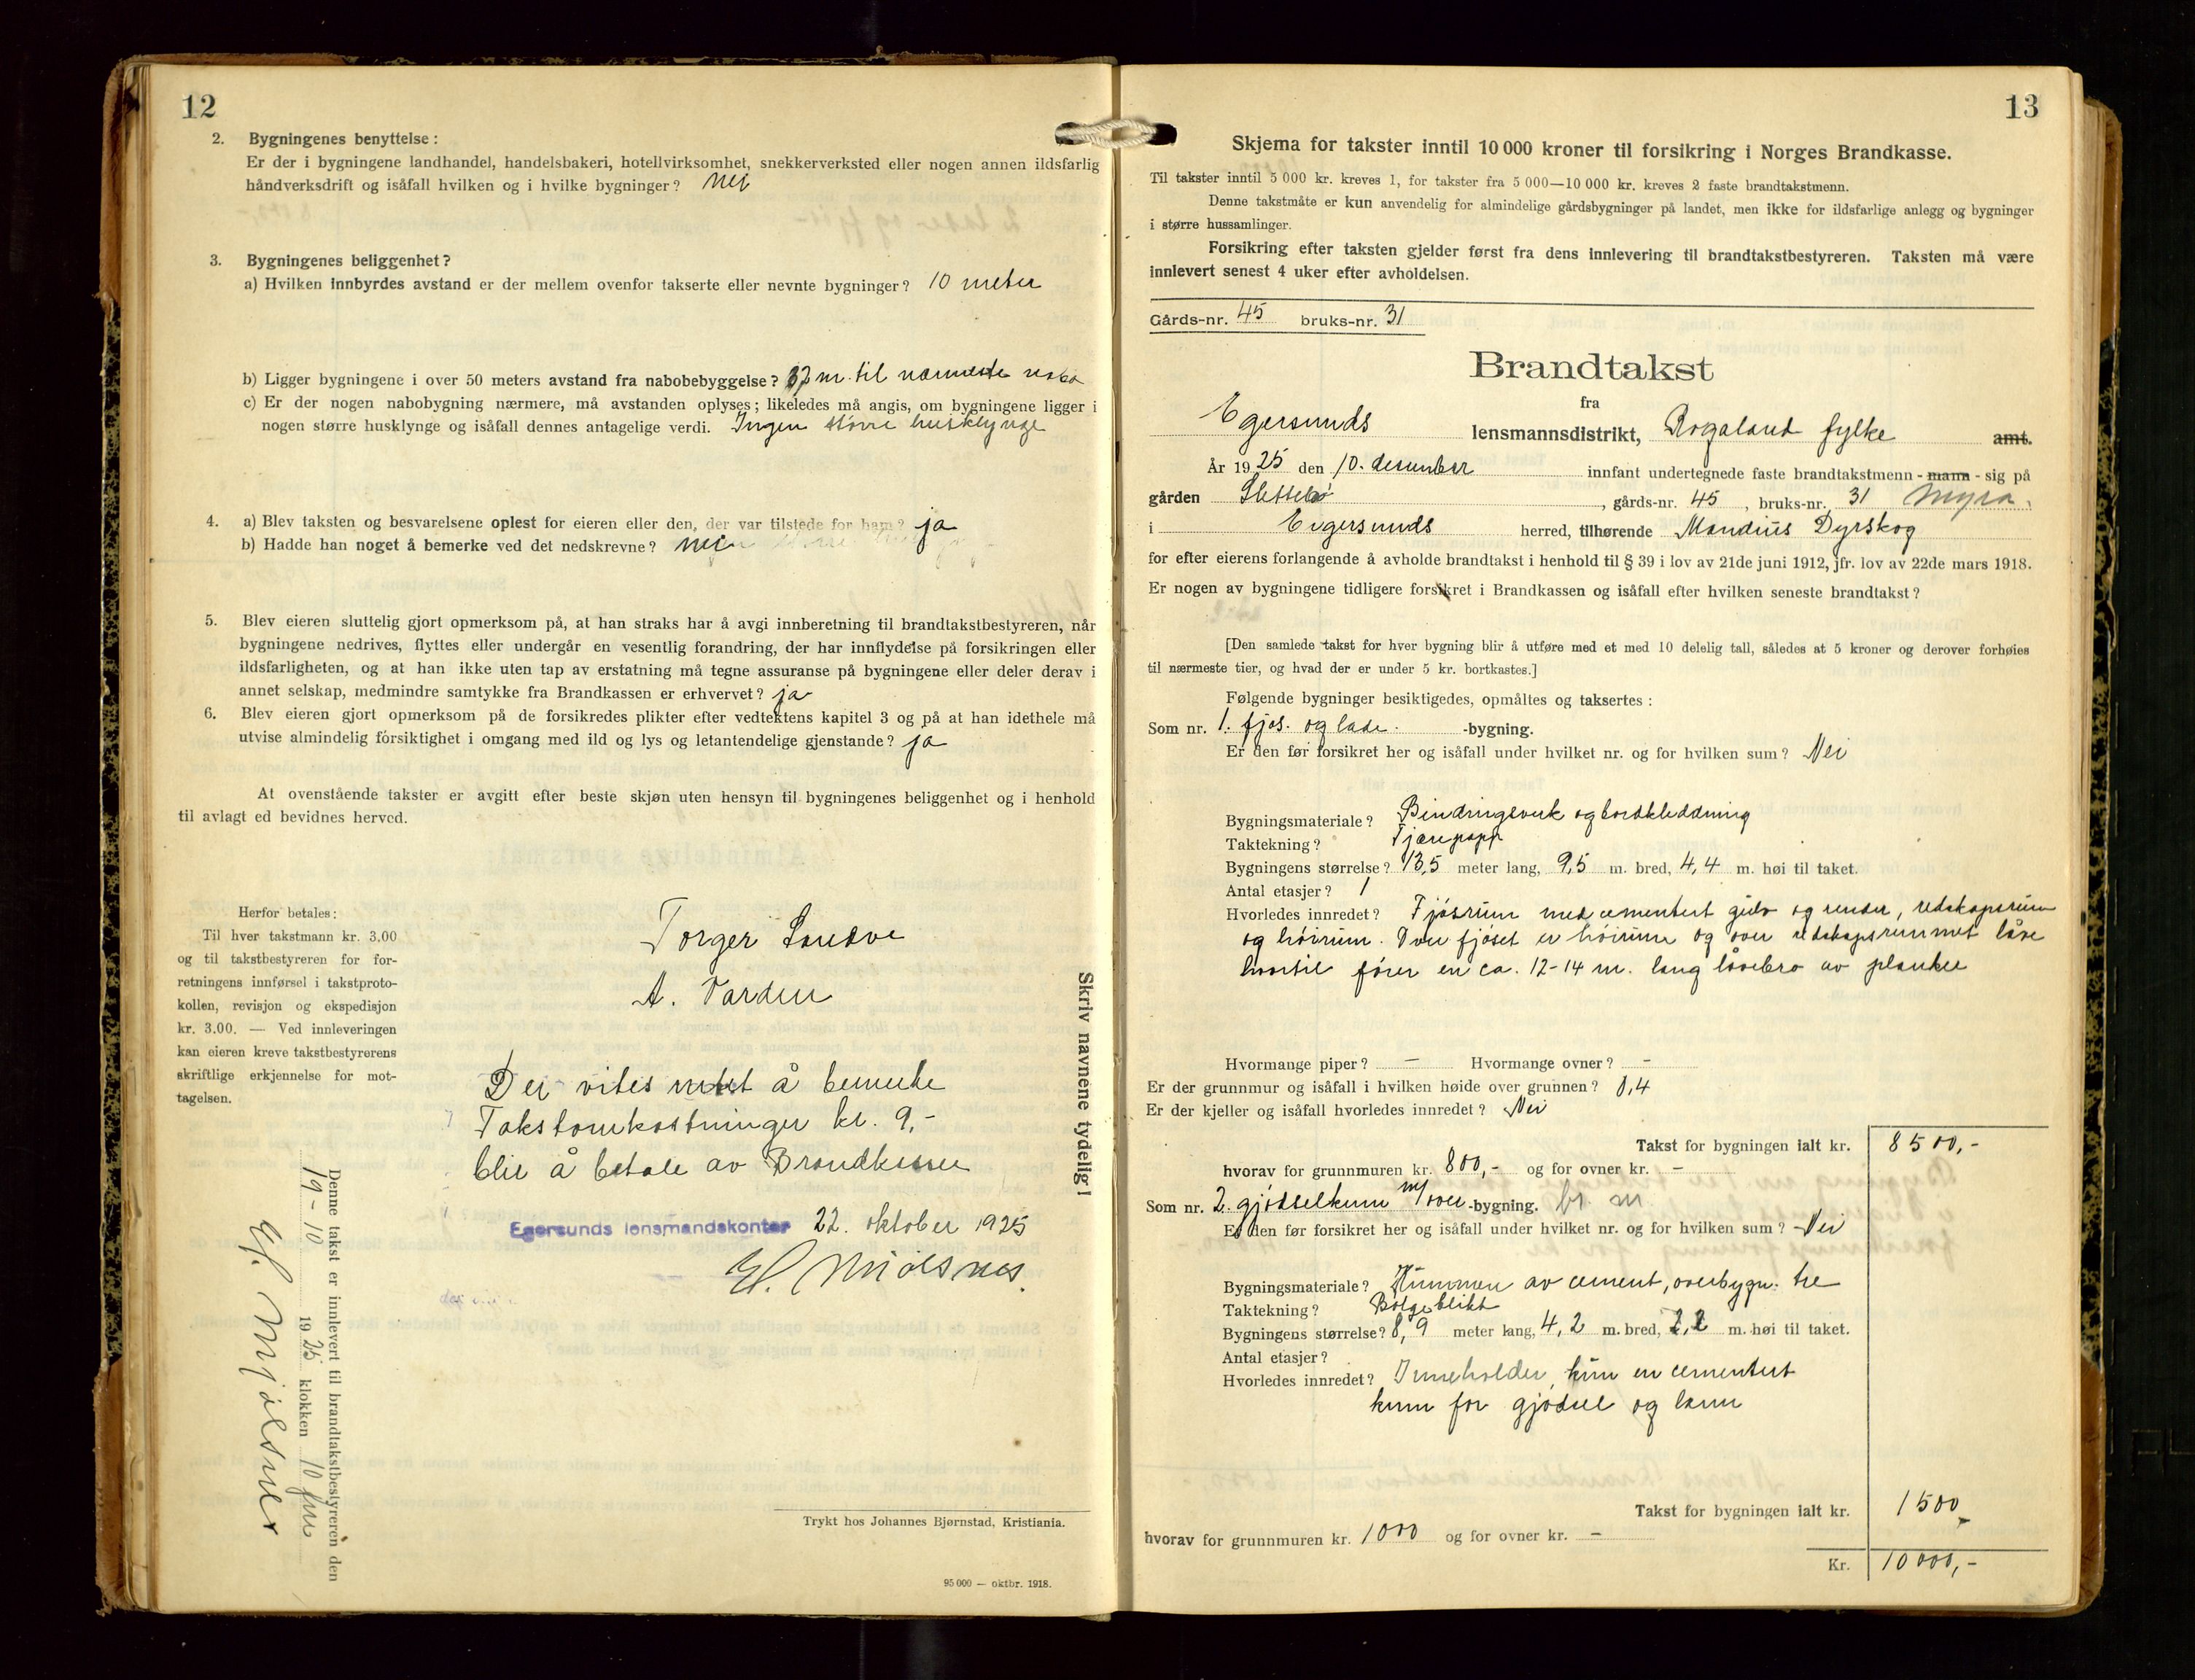 12
2. Bygningenes benyttelse:
Er der i bygningene landhandel, handelsbakeri, hotellvirksomhet, snekkerverksted eller nogen annen ildsfarlig
håndverksdrift og isåfall hvilken og i hvilke bygninger? Nei
3. Bygningenes beliggenhet?
a) Hvilken innbyrdes avstand er der mellem ovenfor takserte eller nevnte bygninger? 10 meter
b) Ligger bygningene i over 50 meters avstand fra nabobebyggelse? 37 m. til nærmeste nabo
c) Er der nogen nabobygning nærmere, må avstanden oplyses; likeledes må angis, om bygningene ligger i
nogen større husklynge og isåfall dennes antagelige verdi. Ingen större husklynge
4. a) Blev taksten og besvarelsene oplest for eieren eller den, der var tilstede for ham? ja
b) Hadde han noget å bemerke ved det nedskrevne? nei
5. Blev eieren sluttelig gjort opmerksom på, at han straks har å avgi innberetning til brandtakstbestyreren, når
bygningene nedrives, flyttes eller undergår en vesentlig forandring, der har innflydelse på forsikringen eller
ildsfarligheten, og at han ikke uten tap av erstatning må tegne assuranse på bygningene eller deler derav i
annet selskap, medmindre samtykke fra Brandkassen er erhvervet? ja
6. Blev eieren gjort opmerksom på de forsikredes plikter efter vedtektens kapitel 3 og på at han idethele må
utvise almindelig forsiktighet i omgang med ild og lys og letantendelige gjenstande? ja
At ovenstående takster er avgitt efter beste skjøn uten hensyn til bygningenes beliggenhet og i henhold
til avlagt ed bevidnes herved.
Herfor betales:
Til hver takstmann kr. 3.00
og til takstbestyreren for for-
retningens innførsel i takstproto-
kollen, revisjon og ekspedisjon
kr. 3.00. — Ved innleveringen
kan eieren kreve takstbestyrerens
skriftlige erkjennelse for mot-
tagelsen.
Torger Sandve
A. Varden
Der vites intet å bemerke
Takstomkostninger kr. 9,-
blir å betale av Brandkassen
Egersunds lensmandskontor 22. oktober 1925
H. Mjölsnes.
Skriv navnene tydelig!
Denne takst er innlevert til brandtakstbestyreren den
19-10 1925 klokken 10 fm
H. Mjölsnes
Trykt hos Johannes Bjørnstad, Kristiania.
95 000 — oktbr. 1918.
13
Skjema for takster inntil 10 000 kroner til forsikring i Norges Brandkasse.
Til takster inntil 5 000 kr. kreves 1, for takster fra 5 000—10 000 kr. kreves 2 faste brandtakstmenn.
Denne takstmåte er kun anvendelig for almindelige gårdsbygninger på landet, men ikke for ildsfarlige anlegg og bygninger
i større hussamlinger.
Forsikring efter taksten gjelder først fra dens innlevering til brandtakstbestyreren. Taksten må være
innlevert senest 4 uker efter avholdelsen.
Gårds-nr. 45 bruks-nr. 31
Brandtakst
fra
Egersunds lensmannsdistrikt, Rogaland fylke amt.
År 1925 den 10. desember innfant undertegnede faste brandtakstmenn - mann - sig på
gården Slettebö, gårds-nr. 45, bruks-nr. 31 Myra
i Eigersunds herred, tilhørende Mandius Dyrskog
for efter eierens forlangende å avholde brandtakst i henhold til § 39 i lov av 21de juni 1912, jfr. lov av 22de mars 1918.
Er nogen av bygningene tidligere forsikret i Brandkassen og isåfall efter hvilken seneste brandtakst?
[Den samlede takst for hver bygning blir å utføre med et med 10 delelig tall, således at 5 kroner og derover forhøies
til nærmeste tier, og hvad der er under 5 kr. bortkastes.]
Følgende bygninger besiktigedes, opmåltes og taksertes:
Som nr. 1. fjøs. og lade. -bygning.
Er den før forsikret her og isåfall under hvilket nr. og for hvilken sum? Nei
Bygningsmateriale? Bindingsverk og bordkledding
Taktekning? Tjærepapp
Bygningens størrelse? 13,5 meter lang, 9,5 m. bred, 4,4 m. høi til taket.
Antal etasjer? 1
Hvorledes innredet? Fjösrum med cementert gulv og render, redskapsrum
og höirum. Over fjöset er höirum og over redskapsrummet låve
hvortil förer en ca. 12-14 m. lang låvebro av planker
Hvormange piper? — Hvormange ovner? -
Er der grunnmur og isåfall i hvilken høide over grunnen? 0,4
Er der kjeller og isåfall hvorledes innredet? Nei
Takst for bygningen ialt kr. 8500,-
hvorav for grunnmuren kr. 800,- og for ovner kr. -
Som nr. 2. gjödselkum m/over -bygning.
Er den før forsikret her og isåfall under hvilket nr. og for hvilken sum? Nei
Bygningsmateriale? Kummen av cement, overbygn. tre
Taktekning? Bölgeblikk
Bygningens størrelse? 8,9 meter lang, 4,2 m. bred, 2,2 m. høi til taket.
Antal etasjer?
Hvorledes innredet? Inneholder kun en cementert
kum for gjödsel og
Takst for bygningen ialt kr. 1500,-
hvorav for grunnmuren kr. 1000 og for ovner kr. -
Kr. 10000,-